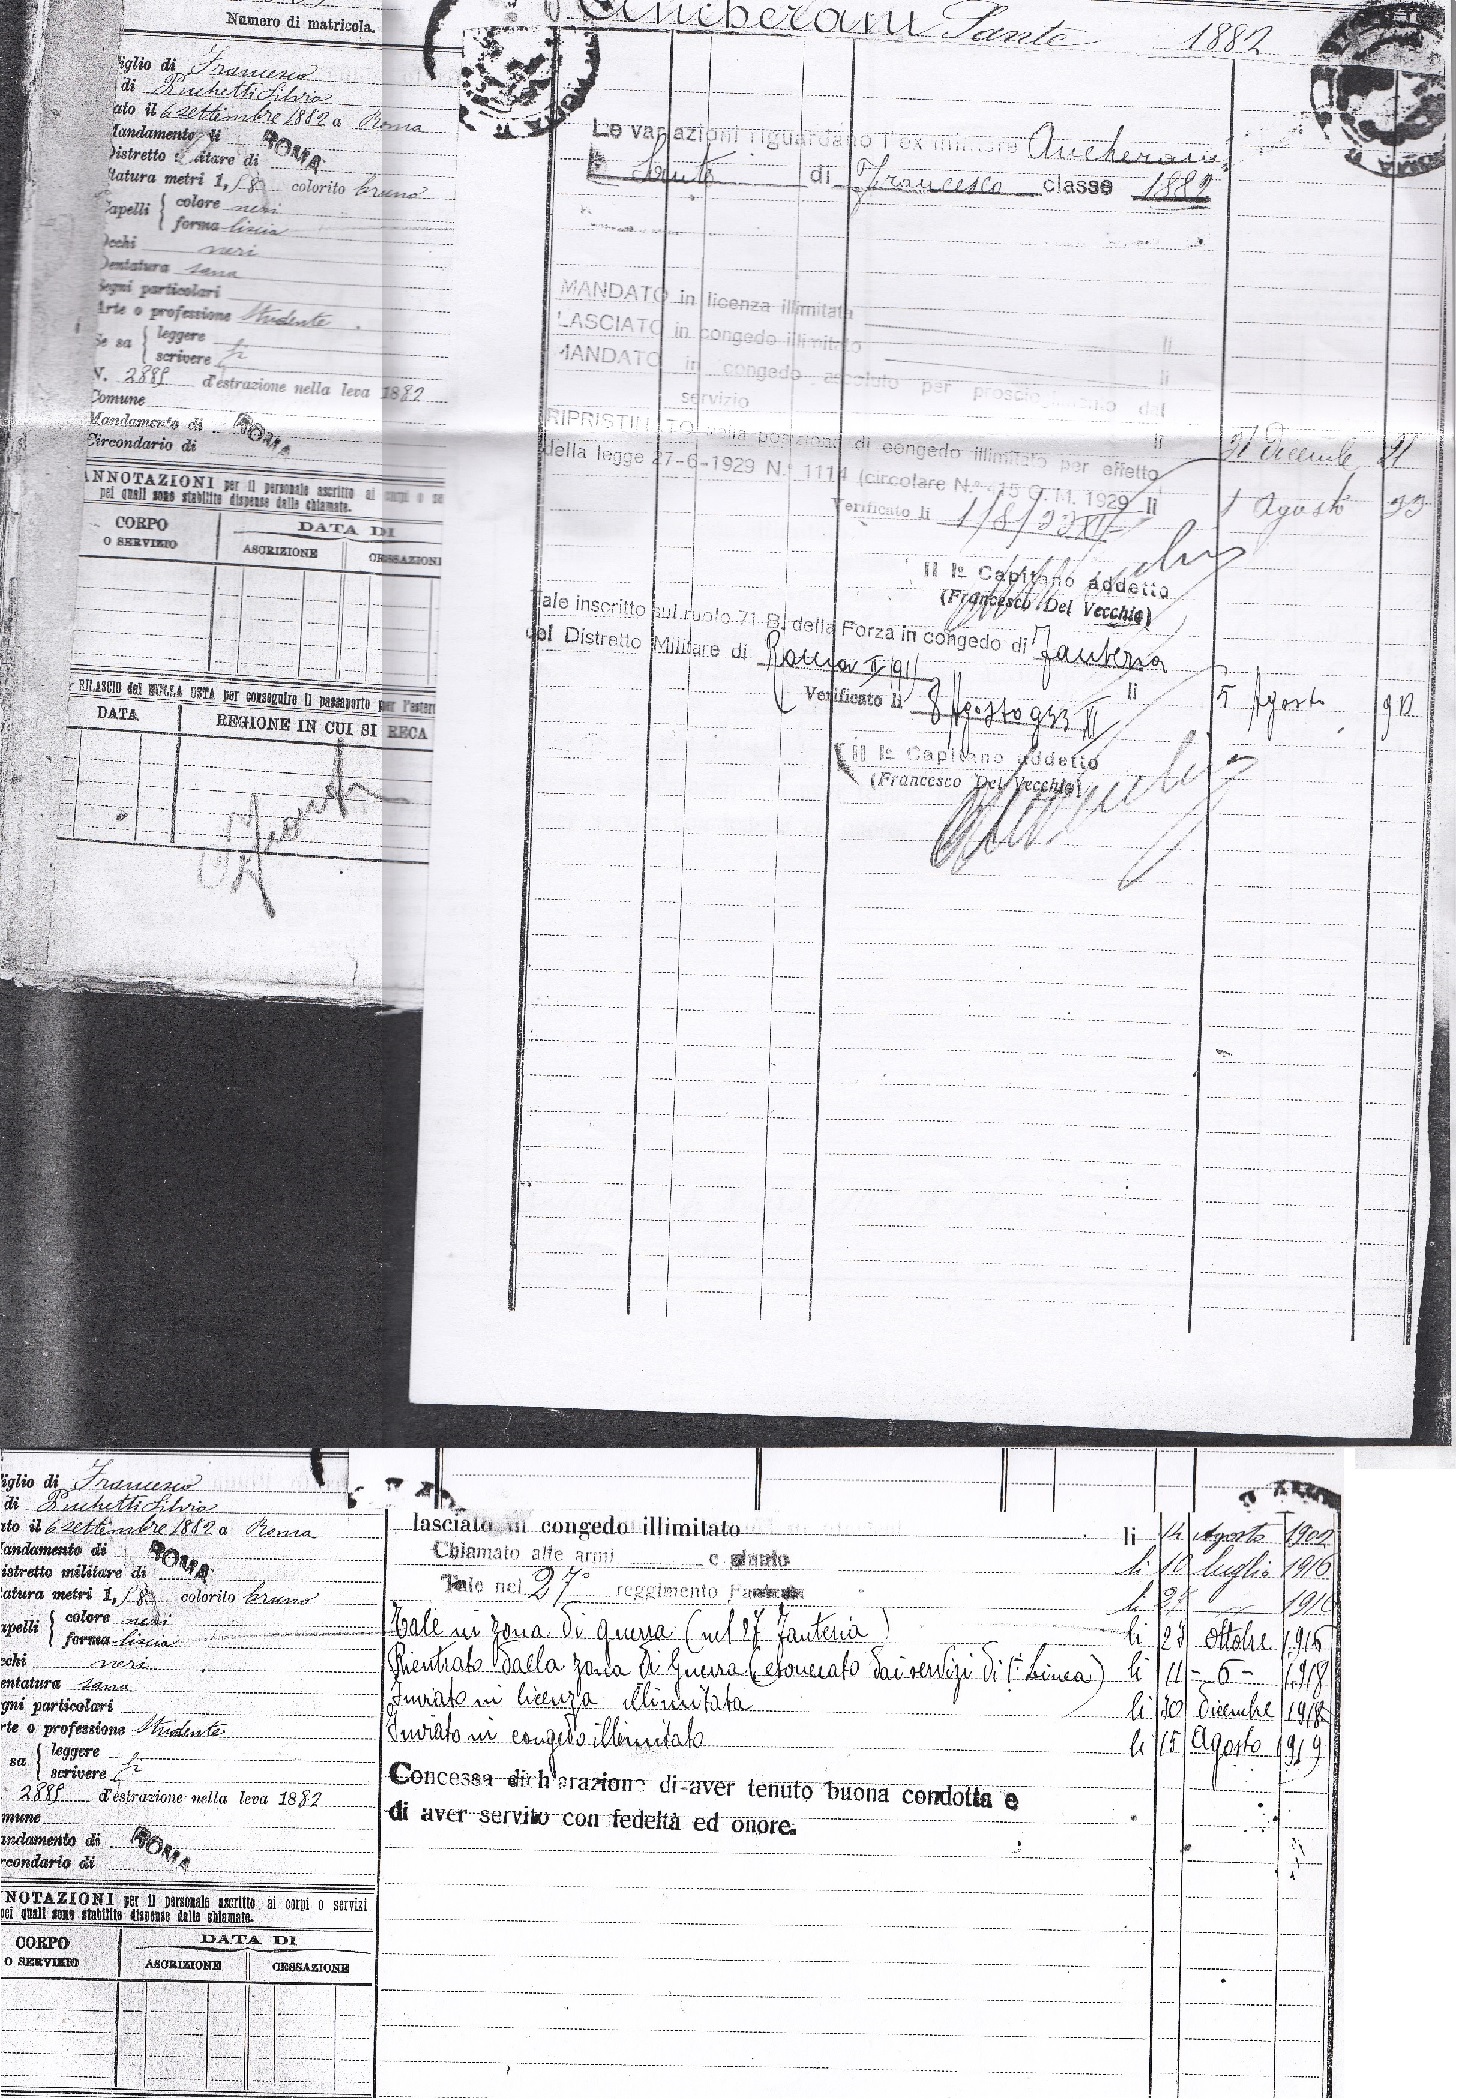 Numero di matricola.
iglio di Francesco
di Puchetti Silvia
ato il 6 settembre 1882 a Roma
Mandamento di
Distretto militare di ROMA
Statura metri 1, colorito bruno
Capelli { colore neri
forma liscia
Occhi neri
Dentatura sana
Segni particolari
Arte o professione Studente.
Se sa { leggere
scrivere
N. 2885 d'estrazione nella leva 1882
Comune
Mandamento di ROMA
Circondario di
ANNOTAZIONI per il personale ascritto ai corpi o se
pei quali sono stabilite dispense dalle chiamate.
CORPO
O SERVIZIO
DATA DI
ASCRIZIONE
CESSAZIONE
RILASCIO del NULLA OSTA per conseguire il passaporto per l'ester
DATA
REGIONE IN CUI SI RECA
Ancherani Sante 1882
Le variazioni riguardano l'ex militare Ancherani
Sante di Francesco classe 1882
MANDATO in licenza illimitata li
LASCIATO in congedo illimitato li
MANDATO in congedo assoluto per proscioglimento del
servizio li 31 Dicembre 21
RIPRISTINATO nella posizione di congedo illimitato per effetto
della legge 27-6-1929 N.° 1114 (circolare N.° 415 G. M. 1929 li 1 Agosto 33
Verificato li 1/8/33 XI
Il 1° Capitano addetto
(Francesco Del Vecchio)
Tale inscritto sul ruolo 71 B. della Forza in congedo di Fanteria
del Distretto Militare di Roma li 5 Agosto
Verificato li 8 Agosto 933 XI
Il 1° Capitano addetto
(Francesco Del Vecchio)
iglio di Francesco
di Puchetti Silvia
ato il 6 settembre 1882 a Roma
andamento di
istretto militare di ROMA
atura metri 1, colorito bruno
apelli { colore neri
forma liscia
cchi neri
entatura sana
gni particolari
rte o professione Studente
sa { leggere
scrivere
2885 d'estrazione nella leva 1882
mune
andamento di ROMA
rcondario di
NOTAZIONI per il personale ascritto ai corpi o servizi
pei quali sono stabilite dispense dalle chiamate.
CORPO
O SERVIZIO
DATA DI
ASCRIZIONE
CESSAZIONE
lasciato in congedo illimitato li 14 Agosto 1902
Chiamato alle armi e giunto li 10 luglio 1916
Tale nel 27° reggimento Fanteria li
Tale in zona di guerra (nel 27 Fanteria) li 23 Ottobre 1916
Rientrato dalla zona di Guerra (esonerato dai servizi di 1ª Linea) li 11 - 6 - 1918
Inviato in licenza illimitata li 30 Dicembre 1918
Inviato in congedo illimitato li 15 Agosto 1919
Concessa dichiarazione di aver tenuto buona condotta e
di aver servito con fedeltà ed onore.